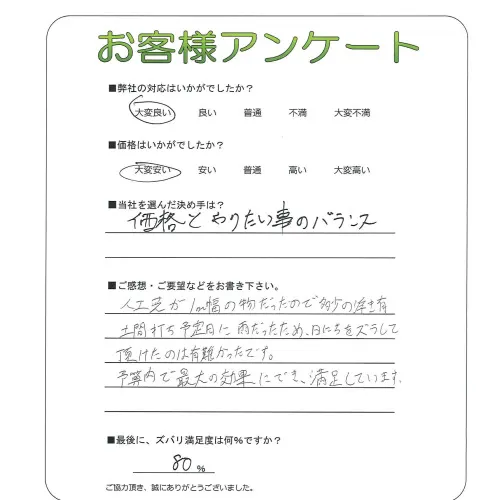 お客様アンケート
■弊社の対応はいかがでしたか?
大変良い 良い 普通 不満 大変不満
■価格はいかがでしたか?
大変安い 安い 普通 高い 大変高い
■当社を選んだ決め手は?
価格とやりたい事のバランス
■ご感想・ご要望などをお書き下さい。
人工芝が1m幅の物だったので多少の浮き有
土間打ち予定日に雨だったため、日にちをズラして
頂けたのは有難かったです。
予算内で最大の効果にでき、満足しています。
■最後に、ズバリ満足度は何%ですか?
80%
ご協力頂き、誠にありがとうございました。